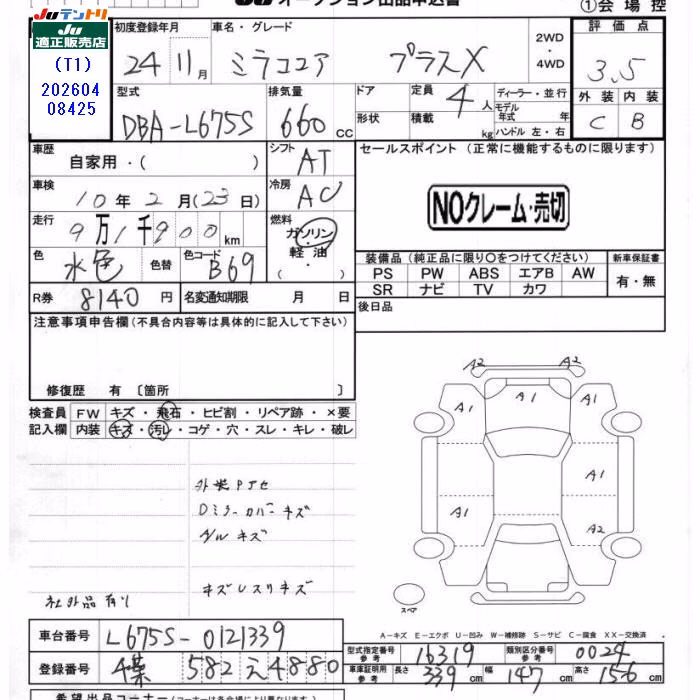 JUテントリ
JU
適正販売店
(T1)
202604
08425
JU オークション出品申込書
①会場控
初度登録年月 車名・グレード 2WD・4WD 評価点
24 11月 ミラココア プラスX 3.5
型式 排気量 ドア 定員 4人 ディーラー・並行 外装 内装
モデル年式 年
DBA-L675S 660cc 形状 積載 kg ハンドル 左・右 C B
車歴 自家用・( ) シフト AT セールスポイント (正常に機能するものに限ります)
車検 10年2月(23日) 冷房 AC
NOクレーム・売切
走行 9万1千900km 燃料 ガソリン・軽油・( )
色 水色 色替 色コード B69
装備品(純正品に限り○をつけてください) 新車保証書
PS PW ABS エアB AW 有・無
SR ナビ TV カワ
R券 8140円 名変通知期限 月 日 後日品
注意事項申告欄(不具合内容等は具体的に記入して下さい)
修復歴 有〔箇所 〕
検査員 FW キズ・飛石・ヒビ割・リペア跡・×要
記入欄 内装 キズ・汚レ・コゲ・穴・スレ・キレ・破レ
A2 A2
A1 A1 A1
A1
A1 A2
外装Pアセ
Dミラーカバーキズ
A/Wキズ
キズUスリキズ
社外品有り
スペア
A-キズ E-エクボ U-凹み W-補修跡 S-サビ C-腐食 XX-交換済
車台番号 L675S-0121339
型式指定番号 参考 16319 類別区分番号 参考 0024
登録番号 582 え4880
車庫証明用 参考 長さ 339cm 幅 147cm 高さ 156cm
希望出品コーナー(コーナーは各会場により異なります)